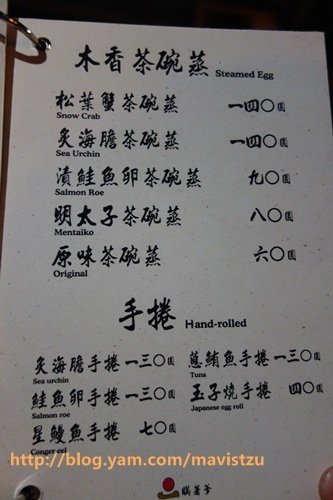 木香茶碗蒸 Steamed Egg
松葉蟹茶碗蒸 一四〇圓
Snow Crab
炙海膽茶碗蒸 一四〇圓
Sea Urchin
漬鮭魚卵茶碗蒸 九〇圓
Salmon Roe
明太子茶碗蒸 八〇圓
Mentaiko
原味茶碗蒸 六〇圓
Original
手捲 Hand-rolled
炙海膽手捲 一三〇圓
Sea urchin
鮭魚卵手捲 一三〇圓
Salmon roe
星鰻魚手捲 七〇圓
Conger eel
蔥鮪魚手捲 一三〇圓
Tuna
玉子燒手捲 四〇圓
Japanese egg roll
http://blog.yam.com/mavistzu